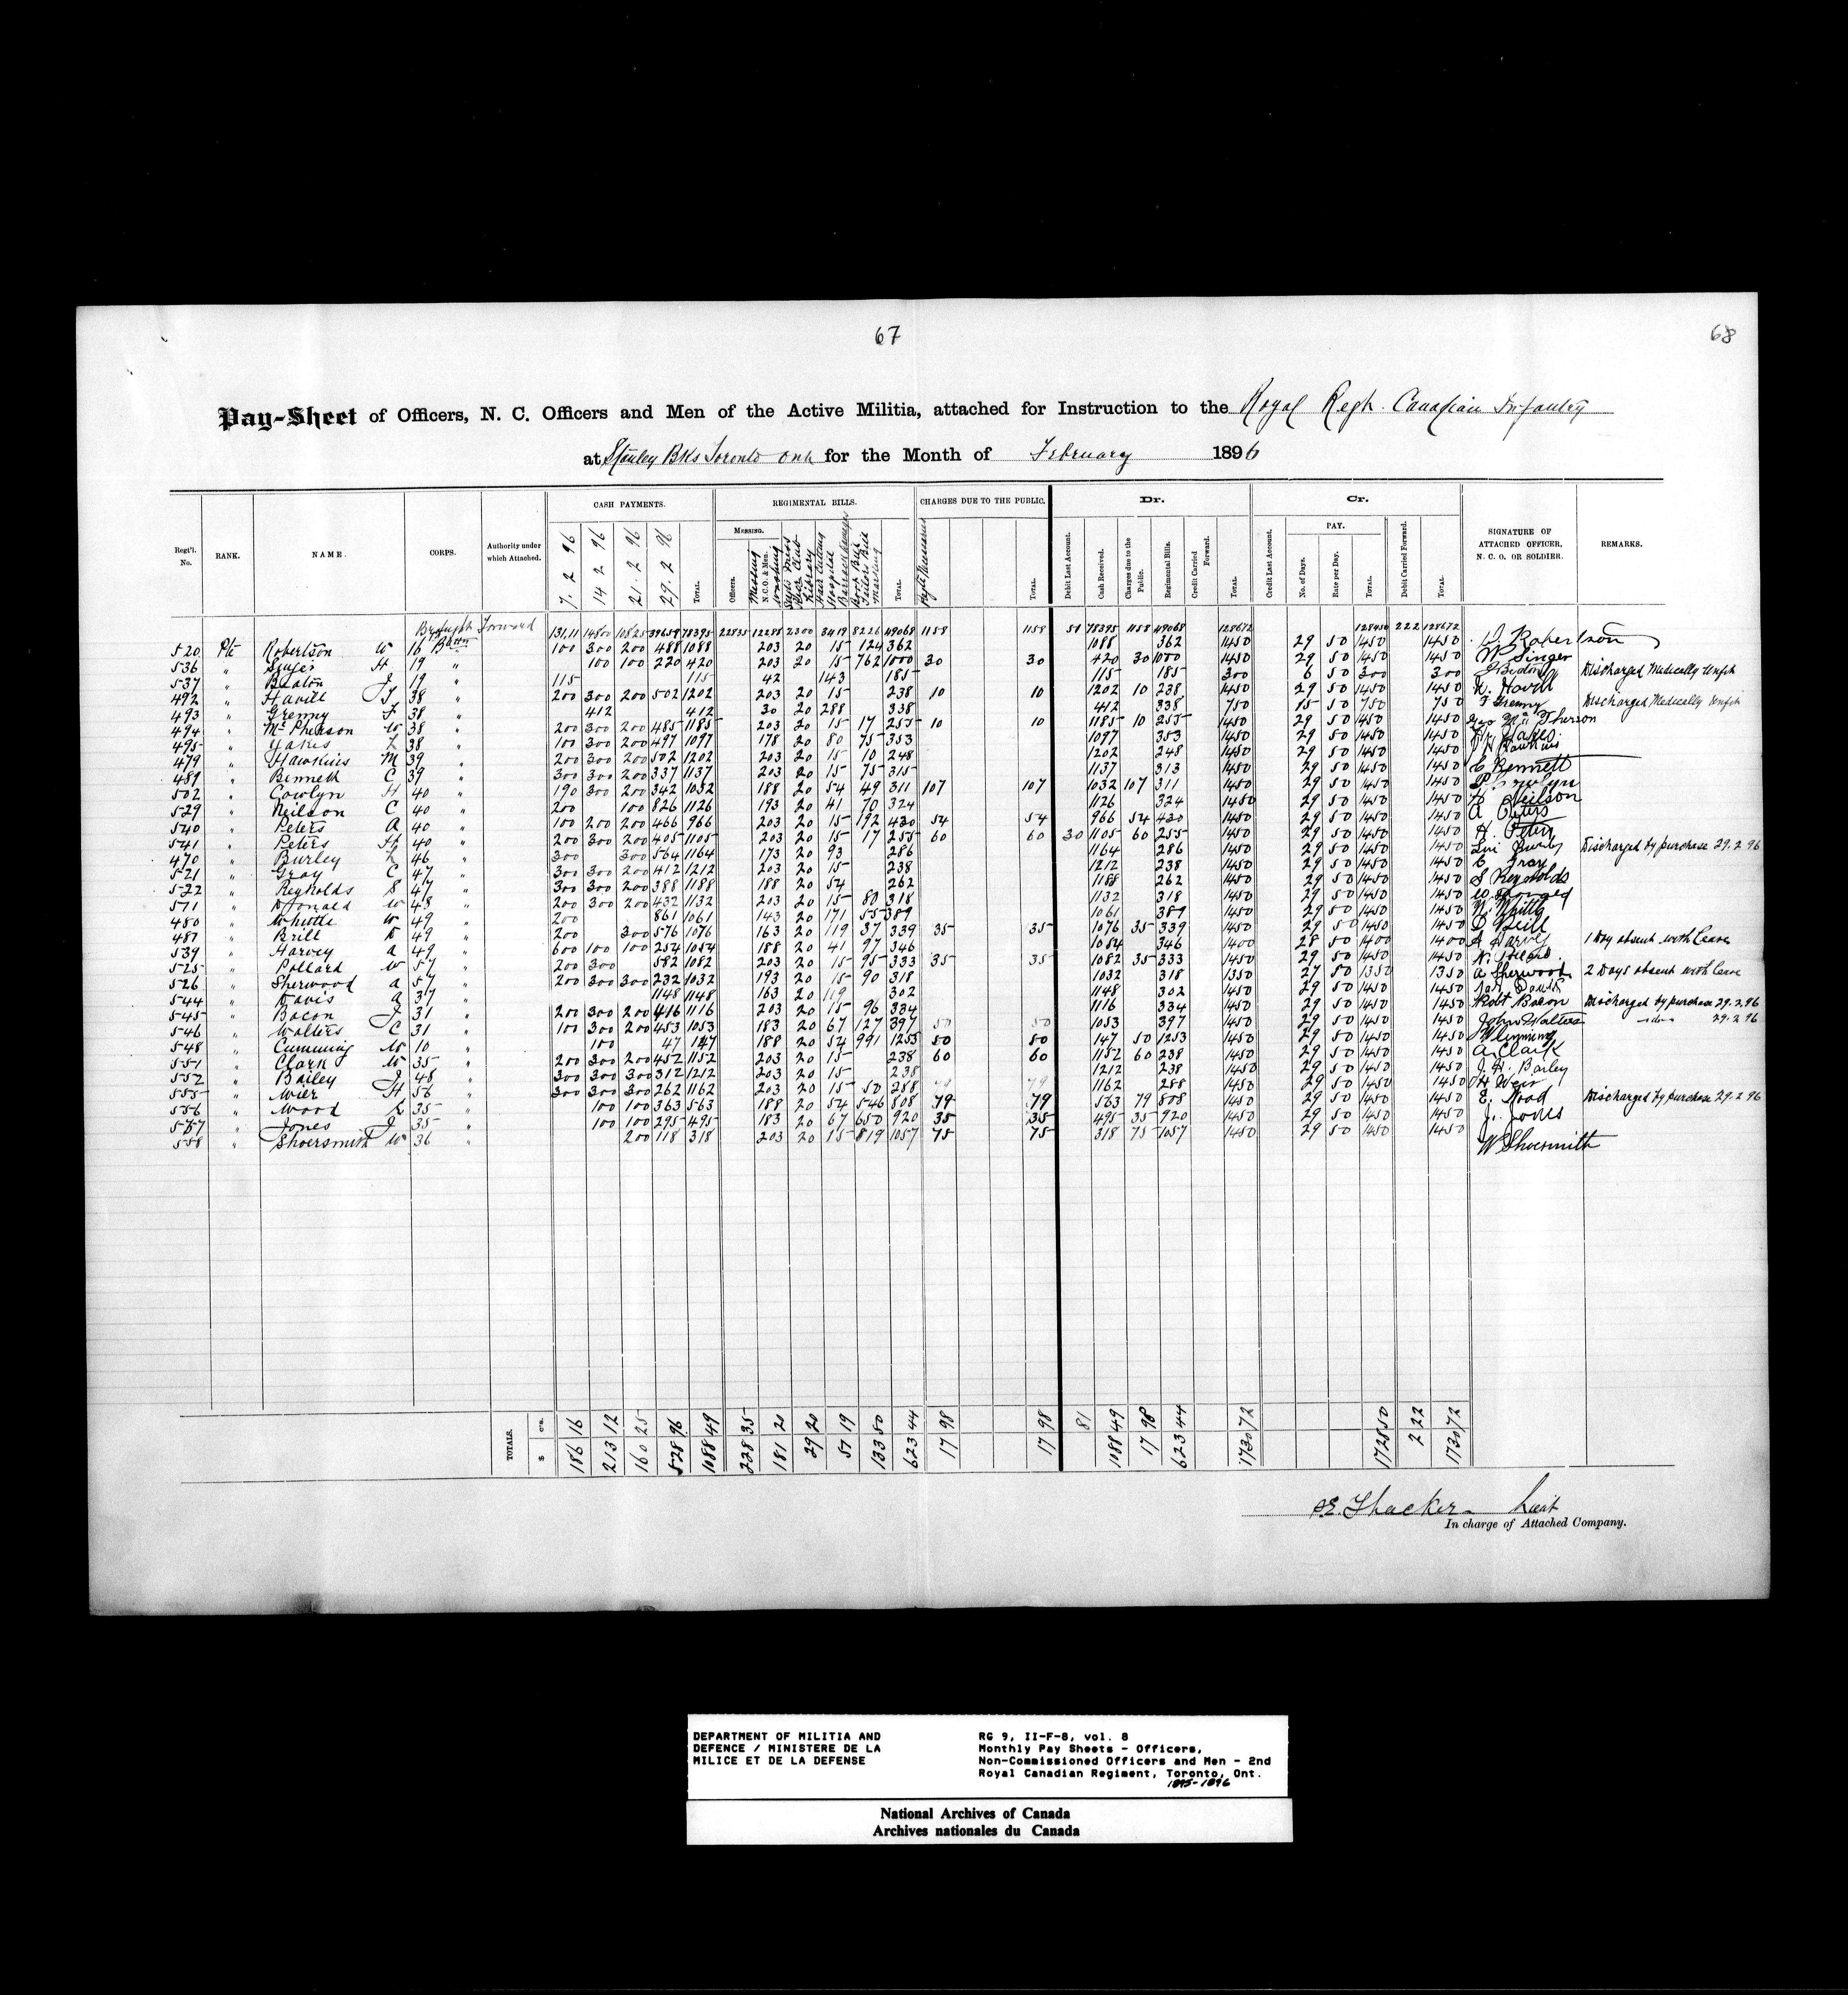 67
68
Pay-Sheet of Officers, N. C. Officers and Men of the Active Militia, attached for Instruction to the Royal Regt. Canadian Infantry
at Stanley Bks Toronto Ont for the Month of February 1896
Regt'l. No. RANK. NAME. CORPS. Authority under which Attached. CASH PAYMENTS. REGIMENTAL BILLS. CHARGES DUE TO THE PUBLIC. Dr. Cr. SIGNATURE OF ATTACHED OFFICER, N. C. O. OR SOLDIER. REMARKS.
7. 2 96 14 2 96 21. 2 96 29. 2 96 TOTAL. MESSING. Officers. Messing N.C.O. & Men. Washing Library Hair Cutting Hospital Barrack Damages Boot Bill Tailors Bill Marking TOTAL. TOTAL. Debit Last Account. Cash Received. Charges due to the Public. Regimental Bills. Credit Carried Forward. TOTAL. Credit Last Account. PAY. No. of Days. Rate per Day. TOTAL. Debit Carried Forward. TOTAL.
Brought Forward 131,11 14500 10825 39658 78395 22835 12285 2300 3419 8226 49068 1158 1158 51 78395 1158 49068 128672 128450 222 128672
520 Pte Robertson W 16 Battn 100 300 200 488 1088 203 20 15 124 362 1088 362 1450 29 50 1450 1450 Robertson
536 " Singer H 19 " 100 100 220 420 203 20 15 762 1000 30 30 420 30 1000 1450 29 50 1450 1450 Singer
537 " Beaton J 19 " 115 115 42 143 185 115 185 300 6 50 300 300 J Beaton Discharged Medically Unfit
492 " Havill 38 " 200 300 200 502 1202 203 20 15 238 10 10 1202 10 238 1450 29 50 1450 1450 Havill
493 " Grenny F 38 " 412 412 30 20 288 338 412 338 750 15 50 750 750 F Grenny Discharged Medically Unfit
494 " McPherson W 38 " 200 300 200 485 1185 203 20 15 17 255 10 10 1185 10 255 1450 29 50 1450 1450 Geo McPherson
495 " Yakes 38 " 100 300 200 497 1097 178 20 80 75 353 1097 353 1450 29 50 1450 1450 Yakes
479 " Hawkins M 39 " 200 300 200 502 1202 203 20 15 10 248 1202 248 1450 29 50 1450 1450 Hawkins
489 " Bennett C 39 " 300 300 200 337 1137 203 20 15 75 313 1137 313 1450 29 50 1450 1450 C Bennett
502 " Cowlyn H 40 " 190 300 200 342 1032 188 20 54 49 311 107 107 1032 107 311 1450 29 50 1450 1450
529 " Neilson C 40 " 200 100 826 1126 193 20 41 70 324 1126 324 1450 29 50 1450 1450 Neilson
540 " Peters A 40 " 100 200 200 466 966 203 20 15 192 430 54 54 966 54 430 1450 29 50 1450 1450 A Peters
541 " Peters H 40 " 200 300 200 405 1105 203 20 15 17 255 60 60 30 1105 60 255 1450 29 50 1450 1450 H. Peters
470 " Burley 46 " 300 300 564 1164 173 20 93 286 1164 286 1450 29 50 1450 1450 Discharged by purchase 29.2 96
521 " Gray C 47 " 300 300 200 412 1212 203 20 15 238 1212 238 1450 29 50 1450 1450 C Gray
522 " Reynolds S 47 " 300 300 200 388 1188 188 20 54 262 1188 262 1450 29 50 1450 1450 S Reynolds
511 " Donald W 48 " 200 300 200 432 1132 203 20 15 80 318 1132 318 1450 29 50 1450 1450
480 " Whittle W 49 " 200 861 1061 143 20 171 55 389 1061 389 1450 29 50 1450 1450
487 " Brill 49 " 200 300 576 1076 163 20 119 37 339 35 35 1076 35 339 1450 29 50 1450 1450 Brill
539 " Harvey A 49 " 600 100 100 254 1054 188 20 41 97 346 1054 346 1400 28 50 1400 1400 A Harvey 1 Day absent with leave
525 " Pollard W 57 " 200 300 582 1082 203 20 15 95 333 35 35 1082 35 333 1450 29 50 1450 1450
526 " Sherwood A 57 " 200 300 300 232 1032 193 20 15 90 318 1032 318 1350 27 50 1350 1350 A Sherwood 2 Days absent with leave
544 " Davis A 37 " 1148 1148 163 20 119 302 1148 302 1450 29 50 1450 1450 Davis
545 " Bacon J 31 " 200 300 200 416 1116 203 20 15 96 334 1116 334 1450 29 50 1450 1450 Robt Bacon Discharged by purchase 29.2.96
546 " Walters C 31 " 100 300 200 453 1053 183 20 67 127 397 50 50 1053 397 1450 29 50 1450 1450 John Walters -do- 29.2 96
548 " Cumming W 10 " 100 47 147 188 20 54 991 1253 50 50 147 50 1253 1450 29 50 1450 1450 Cumming
551 " Clark W 35 " 200 300 200 452 1152 203 20 15 238 60 60 1152 60 238 1450 29 50 1450 1450 A Clark
552 " Bailey J 48 " 300 300 300 312 1212 203 20 15 238 1212 238 1450 29 50 1450 1450 J. H. Bailey
555 " Wier H 56 " 300 300 300 262 1162 203 20 15 50 288 79 79 1162 288 1450 29 50 1450 1450 H Weir
556 " Wood 35 " 100 100 363 563 188 20 54 546 808 79 79 563 79 808 1450 29 50 1450 1450 E. Wood Discharged by purchase 29.2 96
557 " Jones J 35 " 100 100 295 495 183 20 67 650 920 35 35 495 35 920 1450 29 50 1450 1450 J. Jones
558 " Shoersmith W 36 " 200 118 318 203 20 15 819 1057 75 75 318 75 1057 1450 29 50 1450 1450 W Shoesmith
TOTALS. $ cts. 186 16 213 12 160 25 528 96 1088 49 228 35 181 20 29 20 51 19 133 50 623 44 17 98 17 98 81 1088 49 17 98 623 44 1730 72 1728 50 2 22 1730 72
Thacker Lieut
In charge of Attached Company.
DEPARTMENT OF MILITIA AND DEFENCE / MINISTERE DE LA MILICE ET DE LA DEFENSE
RG 9, II-F-8, vol. 8
Monthly Pay Sheets - Officers,
Non-Commissioned Officers and Men - 2nd
Royal Canadian Regiment, Toronto, Ont.
1895-1896
National Archives of Canada
Archives nationales du Canada